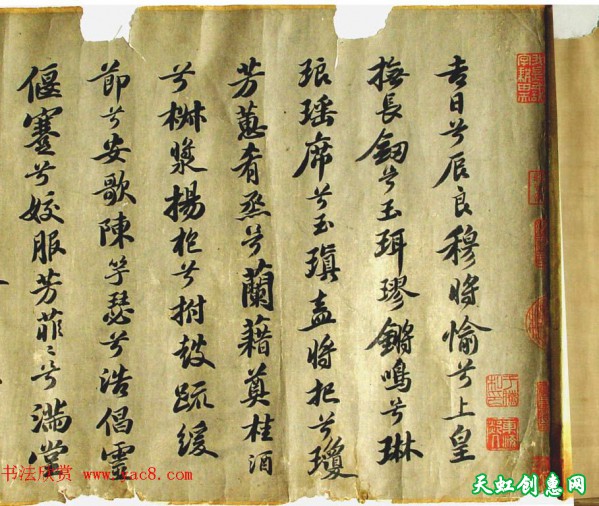 吉日兮辰良穆將愉兮上皇
撫長劒兮玉珥璆鏘鳴兮琳
琅瑤席兮玉瑱盍將把兮瓊
芳蕙肴烝兮蘭藉奠桂酒
兮椒漿揚枹兮拊鼓疏緩
節兮安歌陳竽瑟兮浩倡靈
偃蹇兮姣服芳菲〻兮滿堂
书法欣赏 www.yac8.com
天虹创惠网